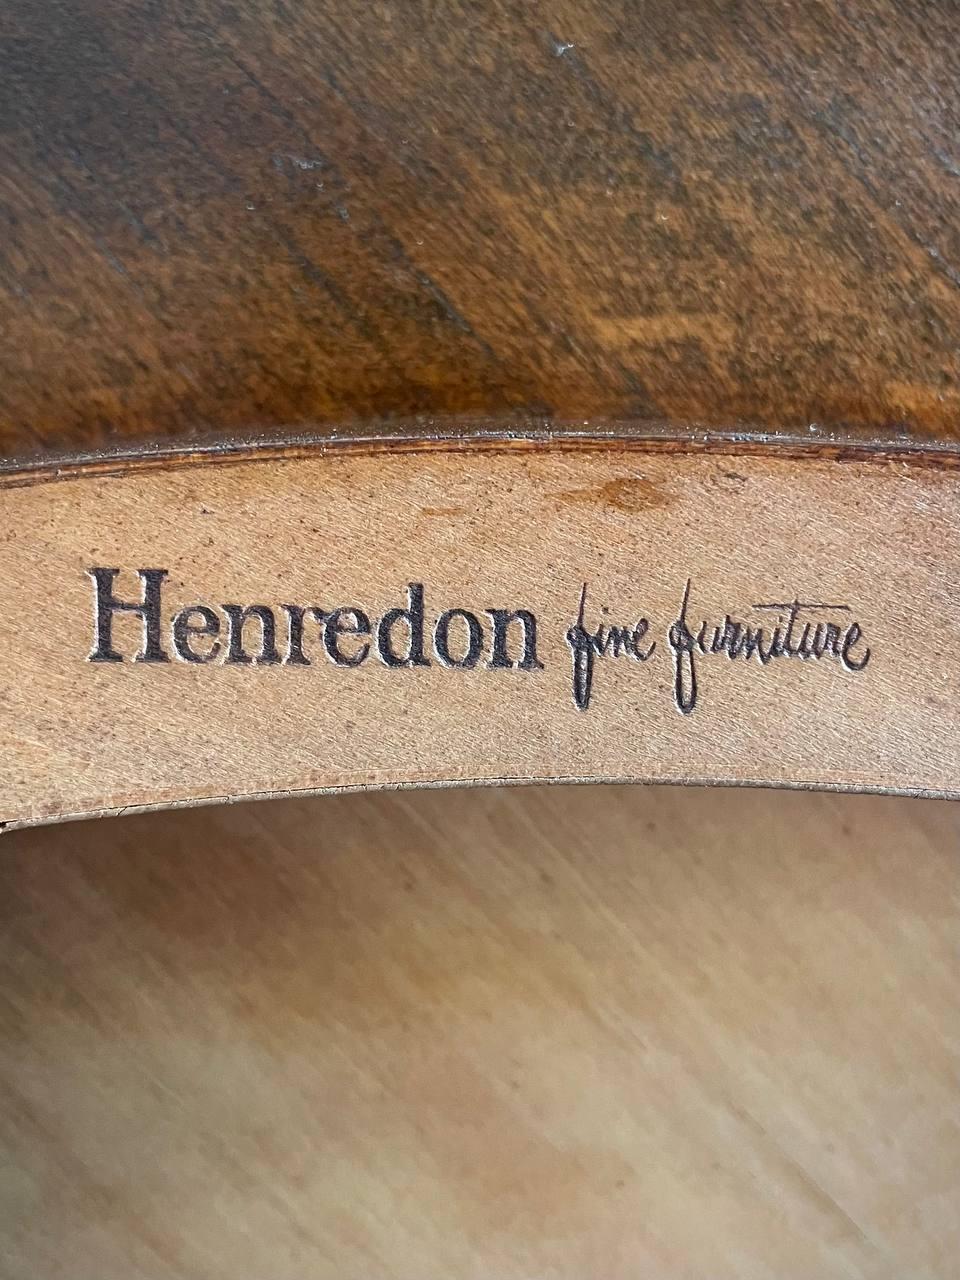 Henredon fine furniture